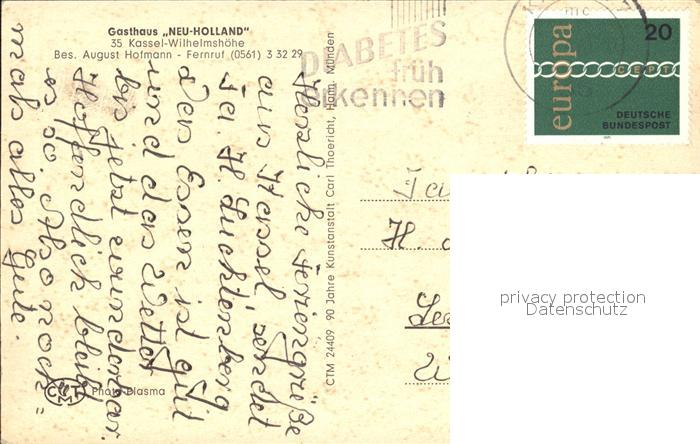 Gasthaus „NEU-HOLLAND"
35 Kassel-Wilhelmshöhe
Bes. August Hofmann - Fernruf (0561) 3 32 29
DIABETES
früh
erkennen
europa
20
CEPT
DEUTSCHE
BUNDESPOST
Herzliche Feriengrüße
aus Kassel, sendet
Fa. H. Luchtenberg
Das Essen ist gut
und das Wetter
bis jetzt wunderbar.
Hoffendlich bleibt
es so. Also noch=
mals alles Gute.
CTM 24409 90 Jahre Kunstanstalt Carl Thoericht, Hann. Münden
Photo Plasma
H.
privacy protection
Datenschutz